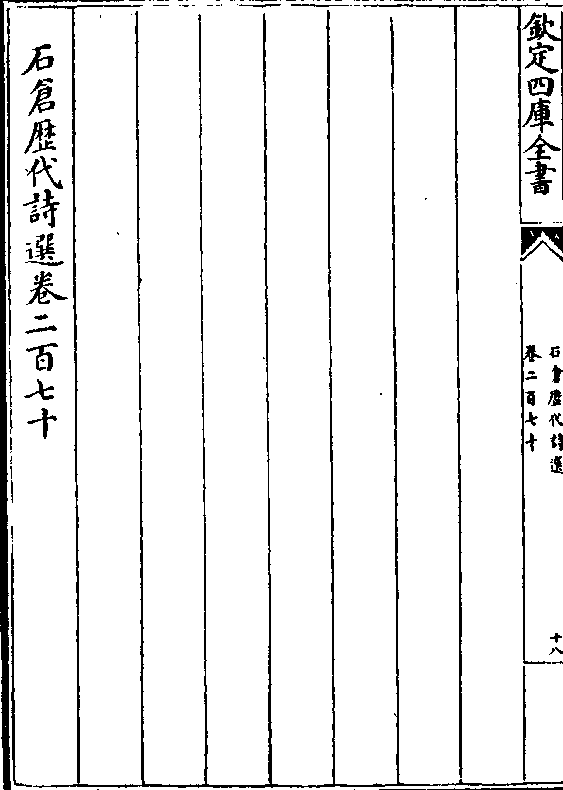 欽定四庫全書
石倉歷代詩選
卷二百七十
十八
石倉歷代詩選卷二百七十